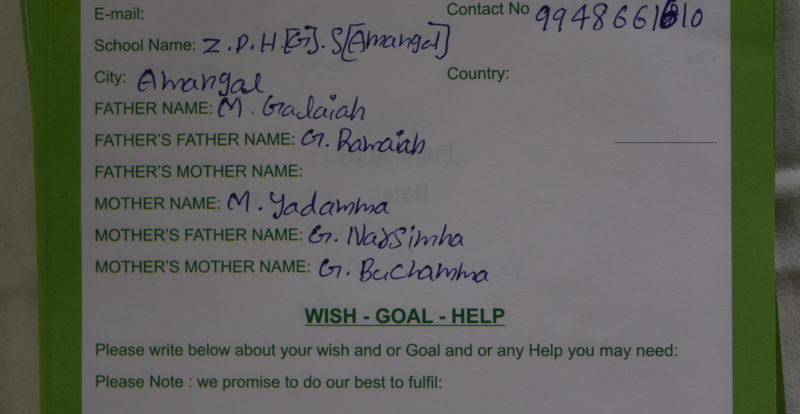 E-mail:
Contact No 9948661610
School Name: Z.P.H[G].S[Amangal]
City: Amangal Country:
FATHER NAME: M. Galaiah
FATHER'S FATHER NAME: G. Ramaiah
FATHER'S MOTHER NAME:
MOTHER NAME: M. Yadamma
MOTHER'S FATHER NAME: G. Narsimha
MOTHER'S MOTHER NAME: G. Buchamma
WISH - GOAL - HELP
Please write below about your wish and or Goal and or any Help you may need:
Please Note : we promise to do our best to fulfil: